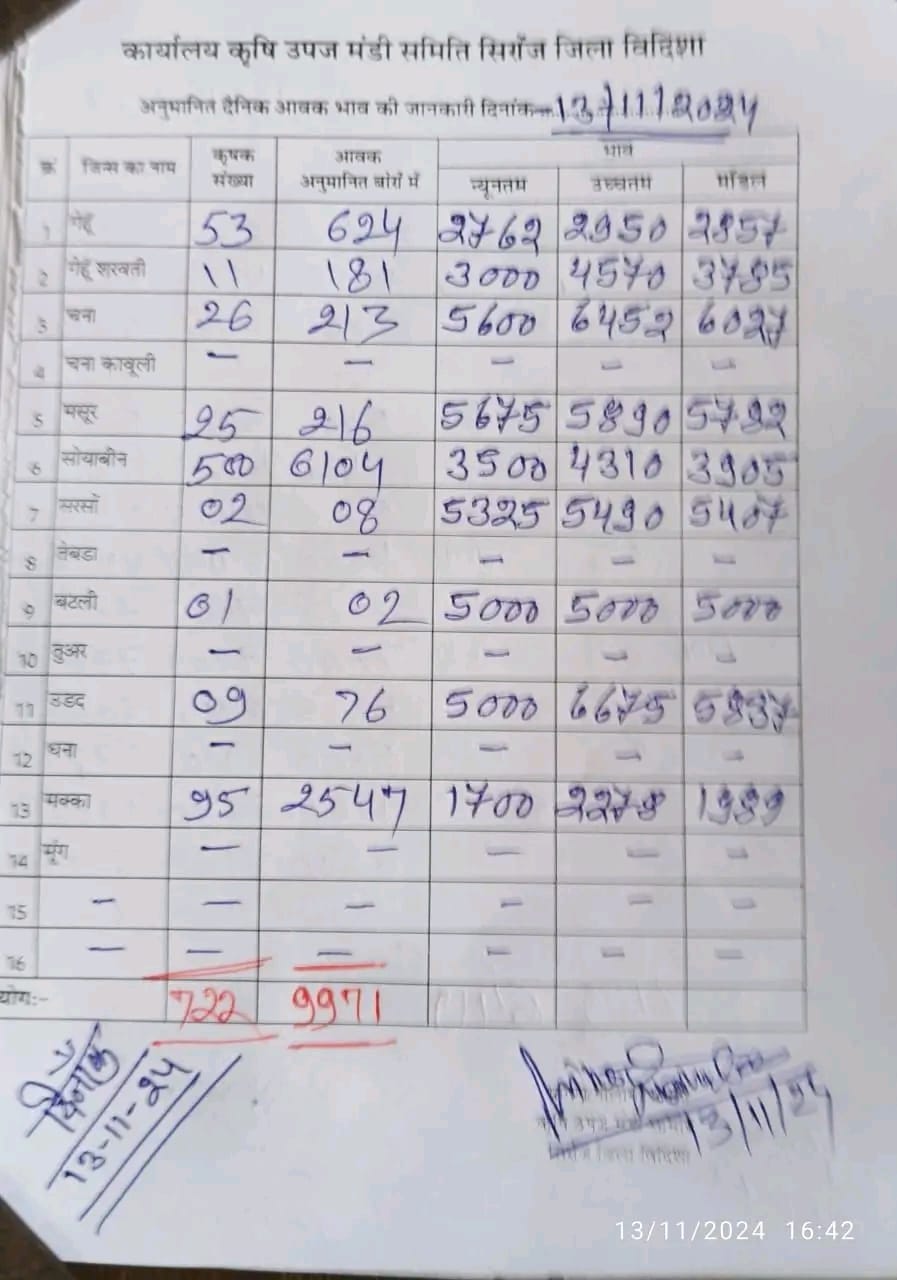 कार्यालय कृषि उपज मंडी समिति सिरोंज जिला विदिशा
अनुमानित दैनिक आवक भाव की जानकारी दिनांक 13/11/2024
क्र जिन्स का नाम कृषक संख्या आवक अनुमानित बोरों में भाव
न्यूनतम उच्चतम मॉडल
1 गेहूं 53 624 2762 2950 2857
2 गेहूं शरबती 11 181 3000 4570 3785
3 चना 26 213 5600 6452 6027
4 चना काबूली — — — — —
5 मसूर 25 216 5675 5890 5782
6 सोयाबीन 500 6104 3500 4310 3905
7 सरसों 02 08 5325 5490 5407
8 तेबडा — — — — —
9 बटली 01 02 5000 5000 5000
10 तुअर — — — — —
11 उडद 09 76 5000 6675 5837
12 धना — — — — —
13 मक्का 95 2547 1700 2278 1989
14 मूंग — — — — —
15 — — — — — —
16 — — — — — —
योगः- 722 9971
13-11-24
13/11/24
सिरोंज जिला विदिशा
13/11/2024 16:42